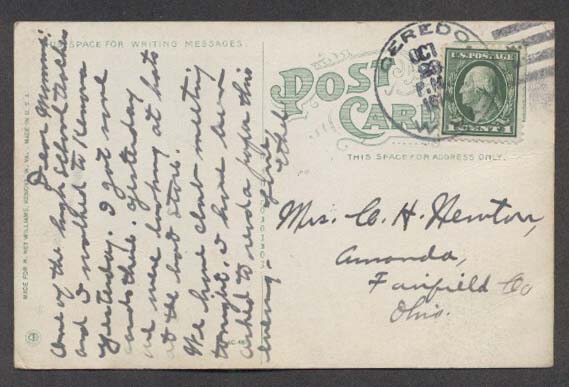 THIS SPACE FOR WRITING MESSAGES.
Dear Mamma:
One of the high school teachers
and I walked to Kenova
yesterday. I got some
cards there. Yesterday
we were looking at hats
at the hat store.
We have club meeting
tonight. I have been
asked to read a paper this
evening.
Ethel
POST
CARD
THIS SPACE FOR ADDRESS ONLY.
CEREDO
OCT
23
P.M.
W.
U.S. POSTAGE
1 CENT 1
Mrs. C. H. Newton,
Amanda,
Fairfield Co
Ohio.
MADE FOR R. HEY WILLIAMS, KENOVA, W. VA. MADE IN U.S.A.